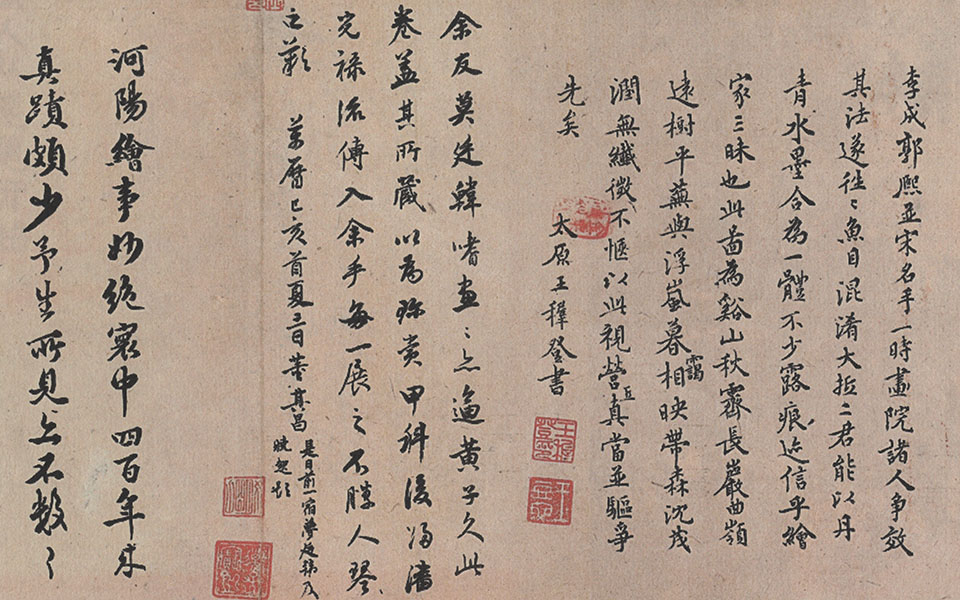 李成郭熙並宋名手一時畫院諸人爭效
其法遂往〻魚目混淆大抵二君能以丹
青水墨合為一體不少露痕迹信乎繪
家三昧也此圖為谿山秋霽長巖曲嶺
遠樹平蕪與浮嵐暮靄相映帶森沈茂
潤無纖微不愜以此視營丘真當並驅爭
先矣 太原王穉登書
余友莫廷韓嗜畫〻亦逼黃子久此
卷蓋其所藏以為珍賞甲科後歸潘
光祿流傳入余手每一展之不勝人琴
之歎 萬曆己亥首夏三日董其昌
是日前一宿夢廷韓及
曉起題
河陽繪事妙絕寰中四百年來
真蹟頗少予生所見亦不數〻